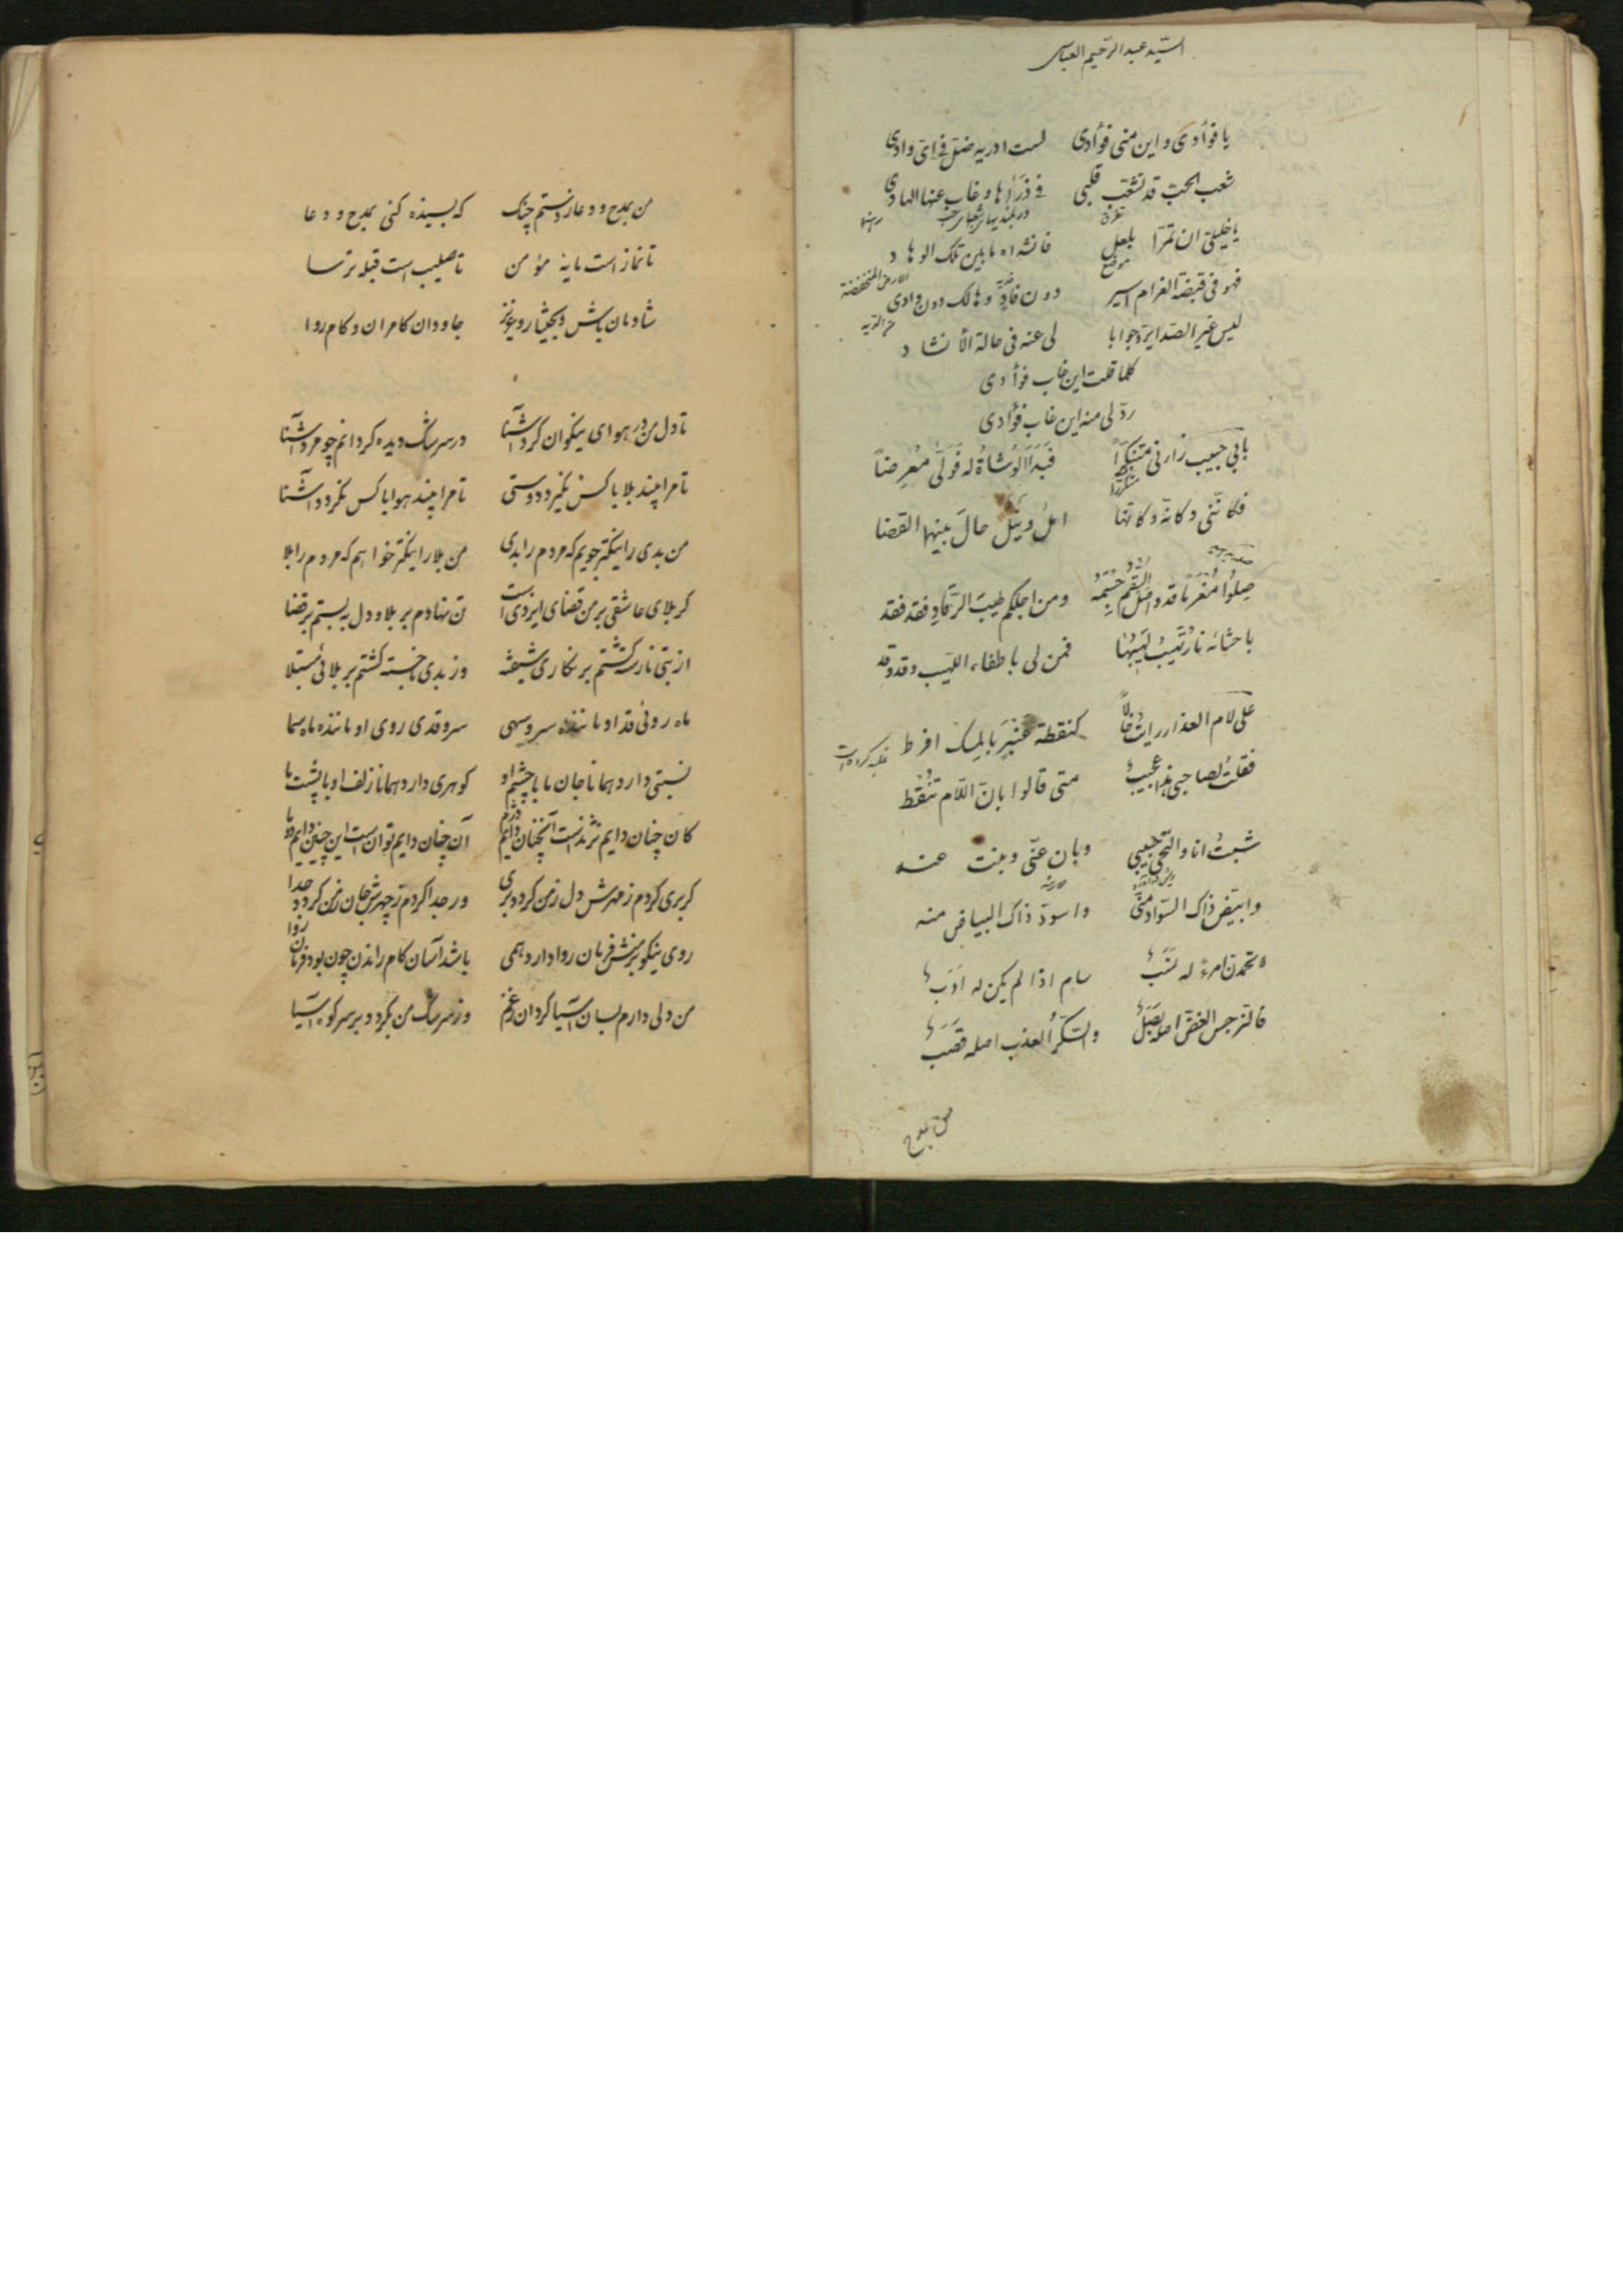 السيد عبد الرحيم العباسي
يا فوأدى و اين منى فوأدى لست ادريه ضل فى اى وادى
شعب الحب قد تشعب قلبى فى ذراها و غاب عنها الهادى
يا خليلى ان تمرا بلعل فانشداه ما بين تلك الوهاد
موضع
الارض المنخفضة
فهو فى قبضة الغرام اسير دون فاد و هالك دون وادى
ليس غير الصدا يرد جوابا لى عنه فى حالة الأنشاد
كلما قلت اين غاب فوأدى
رد لى منه اين غاب فوأدى
بابى حبيب زارنى متنكرا فبدا الوشاة له فولى معرضا
فكاننى و كانه و كانها امل و نيل حال بينهما القضا
صلوا مغرما قد واصل السقم جسمه و من اجلكم طيب الرقاد فقد فقد
باحشائه نار يشب لهيبها فمن لى باطفاء اللهيب و قد وقد
على لام العذار رايت خالا كنقطة عنبر بالمسك افرط
فقلت لصاحبى هذا عجيب متى قالوا بان اللام تنقط
شبت انا و التحى حبيبى و بان عنى و بنت عنه
و ابيض ذاك السواد منى و اسود ذاك البياض منه
لا تحمدن امرء له نسب سام اذا لم يكن له ادب
فالنرجس الغض اصله بصل و السكر العذب اصله قصب
من بمدح و دعا دستم چنگ كه بسينده كنى بمدح و دعا
تا نماز است مايه مؤمن تا صليب است قبله ترسا
شادمان باش و بحيشار و عزيز جاودان كامران و كام روا
تا دل من در هواى نيكوان كرد آشنا در سرشك ديده كردانم چو مرد آشنا
تا مرا بيند بلا با كس نكيرد دوستى تا مرا بيند هوا با كس نكردد آشنا
من بدى را نيكتر جويم كه مردم را بدى من بلا را نيكتر خواهم كه مردم را بلا
كر بلاى عاشقى بر من قضاى ايزدى است تن نهادم بر بلا و دل ببستم بر قضا
از بتى نارسته كشتم بر نكارى شيفته وز بدى ناخسته كشتم بر بلائى مبتلا
ماه روئى قد او ماننده سرو سهى سرو قدى روى او ماننده ماه سما
نسبتى دارد همانا جان ما با چشم او كوهرى دارد همانا زلف او با پشت ما
كان چنان دايم نژندست آنچنان دايم دژم آن چنان دايم نوان است اين چنين دايم دوتا
كر برى كردم ز مهرش دل ز من كردد برى ور جدا كردم ز چهرش جان ز من كردد جدا
روى نيكو بر منش فرمان روا دارد همى باشد آسان كام راندن چون بود فرمان روا
من دلى دارم بسان آسيا كردان ز غم وز سرشك من بكردد بر سر كوه آسيا